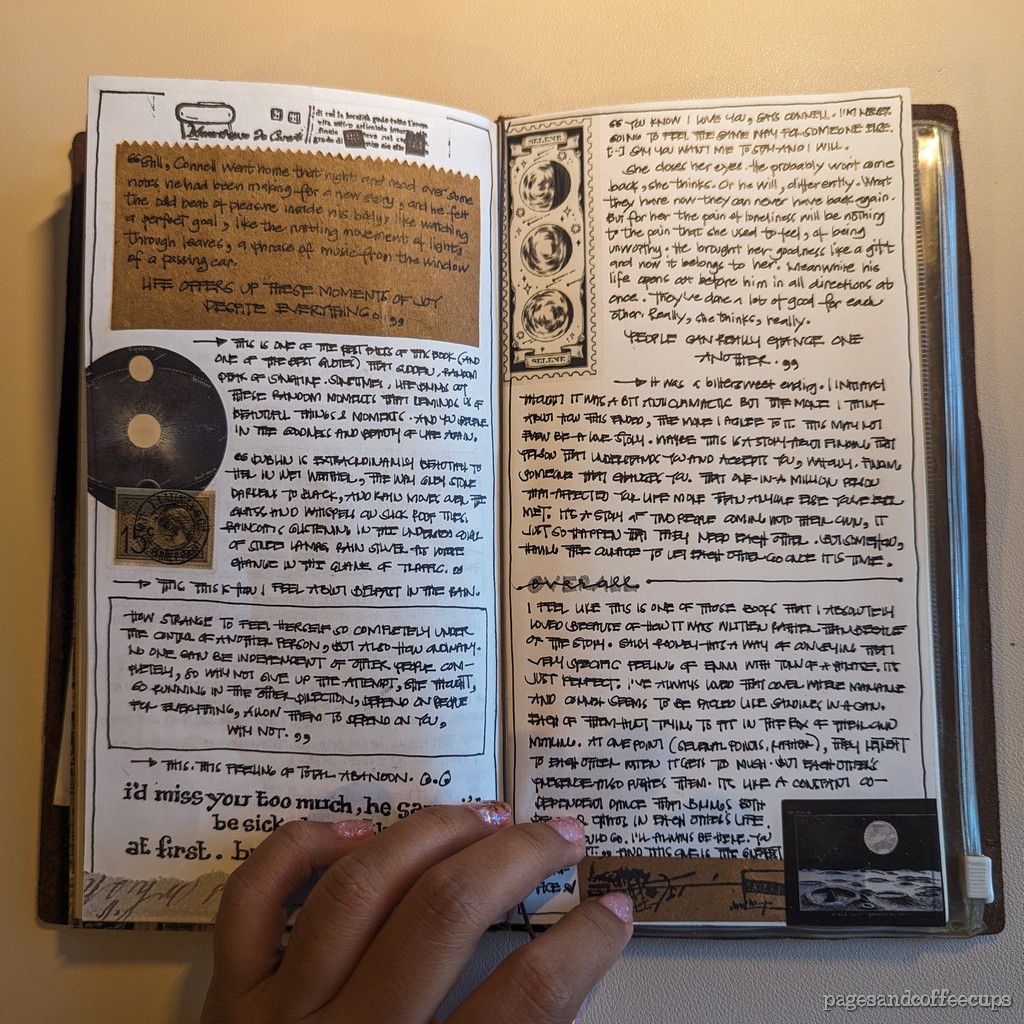 di cui la località gode tutto l'anno
"Still, Connell went home that night and read over some
notes he had been making for a new story, and he felt
the old beat of pleasure inside his body, like watching
a perfect goal, like the rustling movement of light
through leaves, a phrase of music from the window
of a passing car.
LIFE OFFERS UP THESE MOMENTS OF JOY
DESPITE EVERYTHING."
→ THIS IS ONE OF THE BEST PARTS OF THIS BOOK (AND
ONE OF THE BEST QUOTES) THAT SUDDEN, RANDOM
PEAK OF SUNSHINE. SOMETIMES, LIFE BRINGS OUT
THESE RANDOM MOMENTS THAT REMINDS US OF
BEAUTIFUL THINGS & MOMENTS. AND YOU BELIEVE
IN THE GOODNESS AND BEAUTY OF LIFE AGAIN.
"DUBLIN IS EXTRAORDINARILY BEAUTIFUL TO
HER IN WET WEATHER, THE WAY GREY STONE
DARKENS TO BLACK, AND RAIN MOVES OVER THE
GRASS AND WHISPERS ON SLICK ROOF TILES.
RAINCOATS GLISTENING IN THE UNDERSEA COLOUR
OF STREET LAMPS. RAIN SILVER AS LOOSE
CHANGE IN THE GLARE OF TRAFFIC."
→ THIS. THIS IS HOW I FEEL ABOUT BELFAST IN THE RAIN.
HOW STRANGE TO FEEL HERSELF SO COMPLETELY UNDER
THE CONTROL OF ANOTHER PERSON, BUT ALSO HOW ORDINARY.
NO ONE CAN BE INDEPENDENT OF OTHER PEOPLE COM-
PLETELY, SO WHY NOT GIVE UP THE ATTEMPT, SHE THOUGHT,
GO RUNNING IN THE OTHER DIRECTION, DEPEND ON PEOPLE
FOR EVERYTHING, ALLOW THEM TO DEPEND ON YOU,
WHY NOT."
→ THIS. THIS FEELING OF TOTAL ABANDON.
i'd miss you too much, he
be sick
at first.
SELENE
SELENE
"YOU KNOW I LOVE YOU, SAYS CONNELL. I'M NEVER
GOING TO FEEL THE SAME WAY FOR SOMEONE ELSE.
[..] SAY YOU WANT ME TO STAY AND I WILL.
She closes her eyes. He probably won't come
back, she thinks. Or he will, differently. What
they have now they can never have back again.
But for her the pain of loneliness will be nothing
to the pain that she used to feel, of being
unworthy. He brought her goodness like a gift
and now it belongs to her. Meanwhile his
life opens out before him in all directions at
once. They've done a lot of good for each
other. Really, she thinks, really.
PEOPLE CAN REALLY CHANGE ONE
ANOTHER."
→ It was a bittersweet ending. I INITIALLY
THOUGHT IT WAS A BIT ANTICLIMACTIC BUT THE MORE I THINK
ABOUT HOW THIS ENDED, THE MORE I AGREE TO IT. THIS MAY NOT
EVEN BE A LOVE STORY. MAYBE THIS IS A STORY ABOUT FINDING THAT
PERSON THAT UNDERSTANDS YOU AND ACCEPTS YOU, WHOLLY. FINDING
SOMEONE THAT CHANGES YOU. THAT ONE-IN-A MILLION PERSON
THAT AFFECTED YOUR LIFE MORE THAN ANYONE ELSE YOU'VE EVER
MET. IT'S A STORY OF TWO PEOPLE COMING INTO THEIR OWN, IT
JUST SO HAPPEN THAT THEY NEED EACH OTHER. BUT SOMEHOW,
HAVING THE COURAGE TO LET EACH OTHER GO ONCE IT IS TIME.
overall
I FEEL LIKE THIS IS ONE OF THOSE BOOKS THAT I ABSOLUTELY
LOVED BECAUSE OF HOW IT WAS WRITTEN RATHER THAN BECAUSE
OF THE STORY. SALLY ROONEY HAS A WAY OF CONVEYING THAT
VERY SPECIFIC FEELING OF ENNUI WITH TURN OF A PHRASE. IT'S
JUST PERFECT. I'VE ALWAYS LOVED THAT COVER WHERE MARIANNE
AND CONNELL SEEMS TO BE PACKED LIKE SARDINES IN A CAN.
EACH OF THEM TRYING TO FIT IN THE BOX OF THEIR OWN
MAKING. AT ONE POINT (SEVERAL POINTS, RATHER), THEY RETREAT
TO EACH OTHER WHEN IT GETS TO MUCH. BUT EACH OTHER'S
PRESENCE ALSO THEM. IT'S LIKE A CONSTANT CO-
DEPENDENT DANCE THAT BRINGS BOTH
IN EACH OTHER'S LIFE.
GO. I'LL ALWAYS BE HERE. YOU
AND THIS ONE IS THE
pagesandcoffeecups